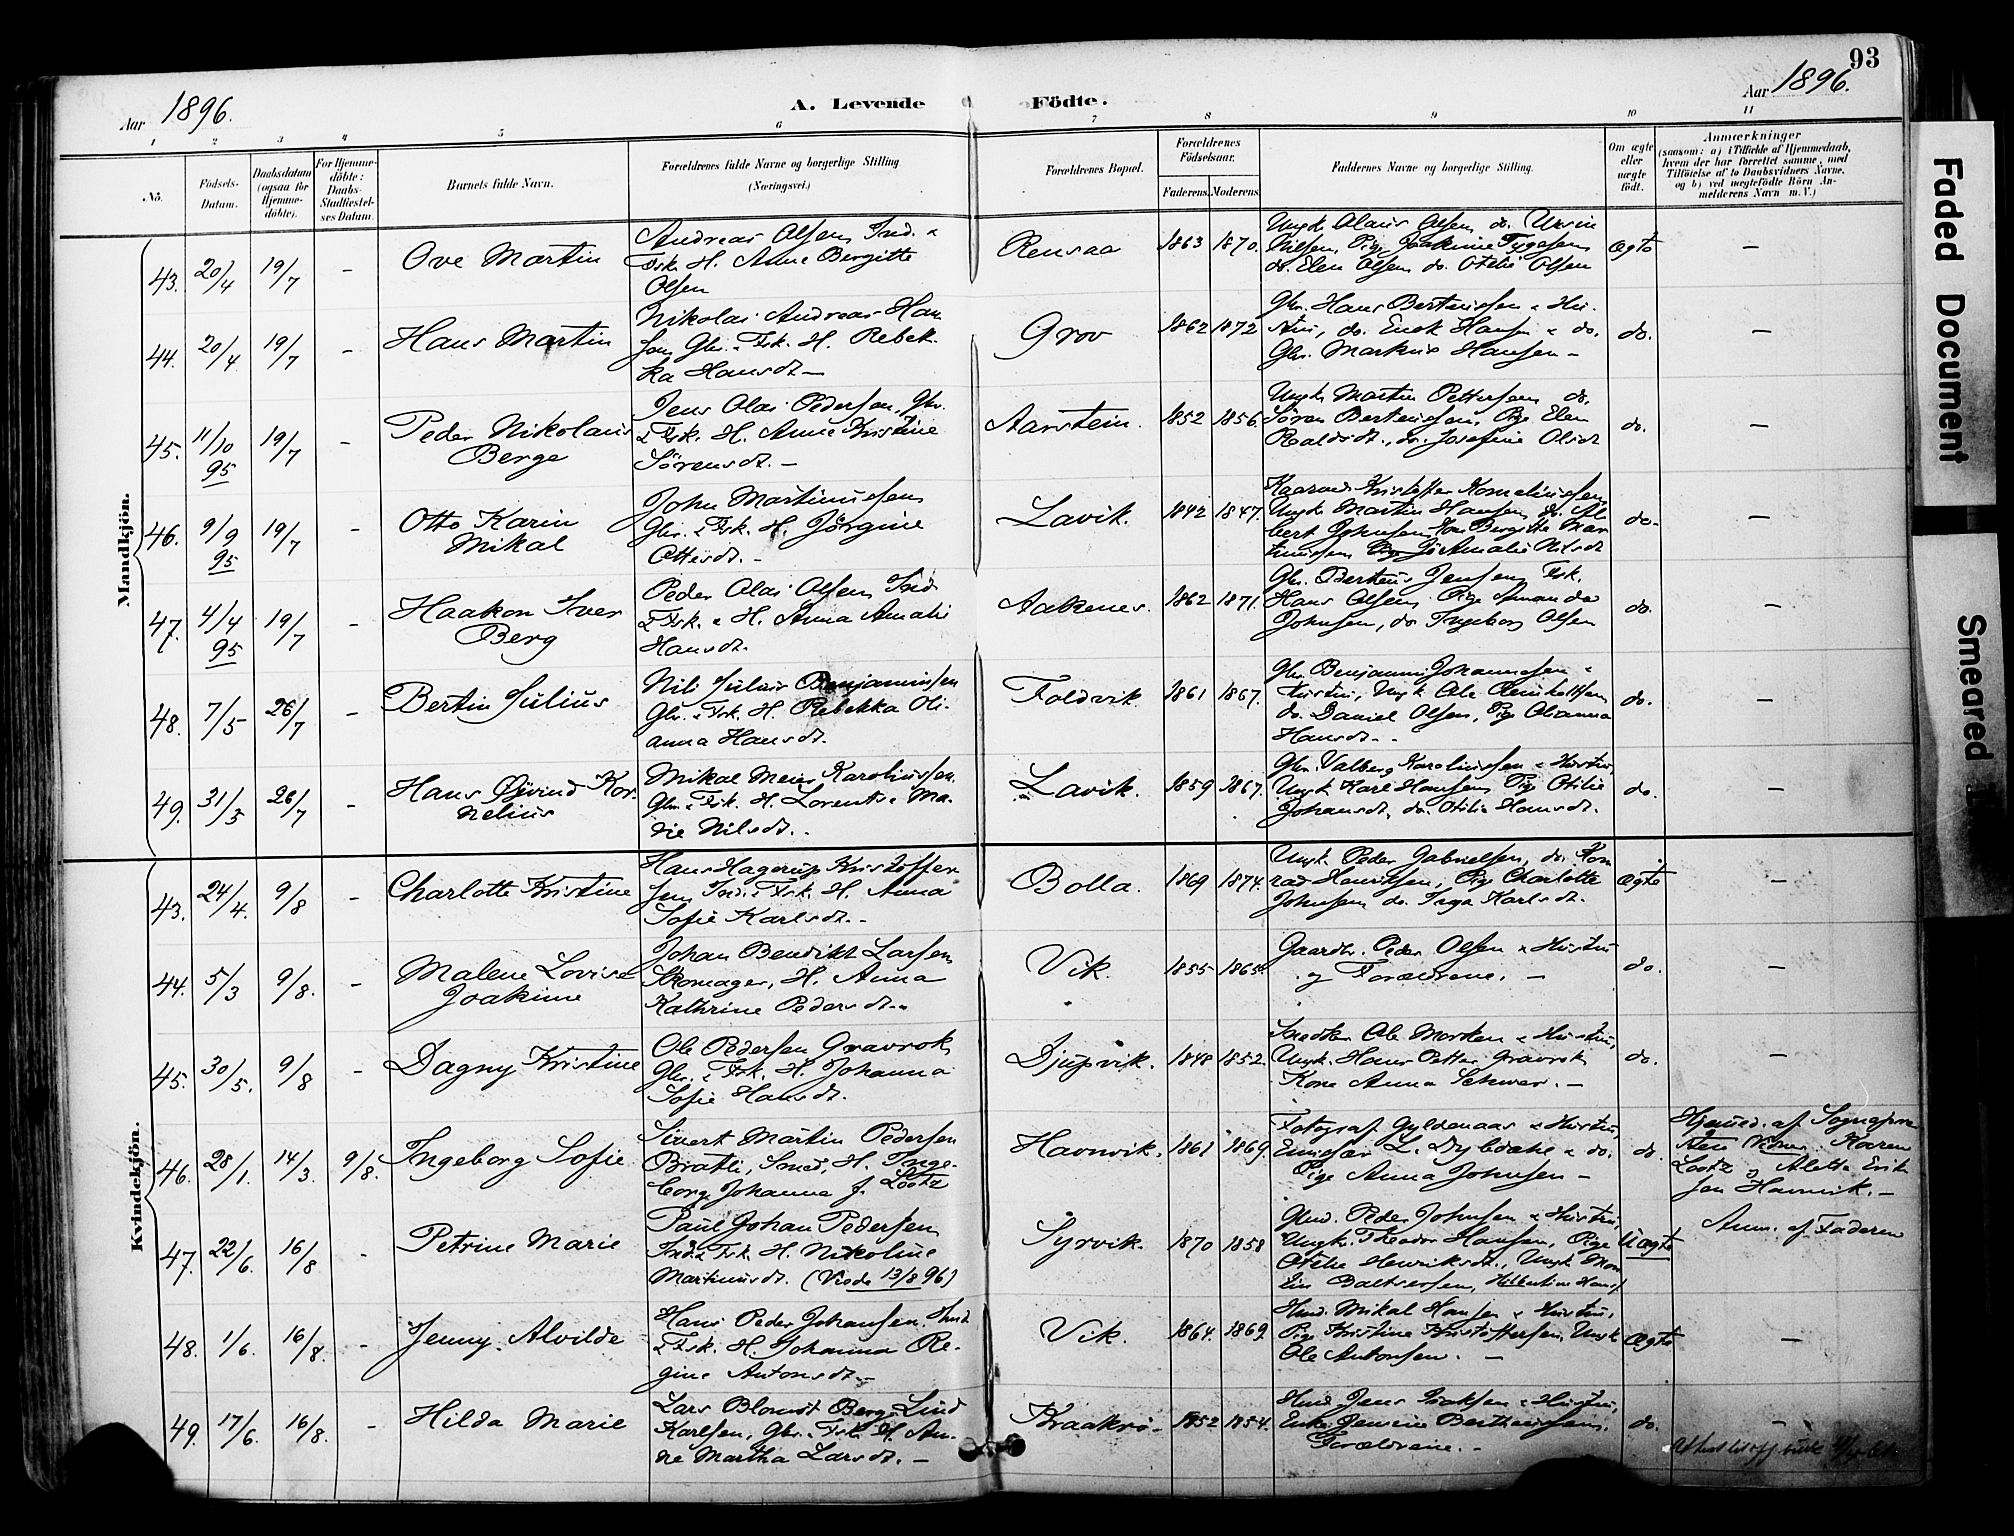 93
Aar 1896.
A. Levende Födte.
Aar 1896.
1 2 3 4 5 6 7 8 9 10 11
No.
Födsels-
Datum.
Daabsdatum
(ogsaa for
Hjemme-
döbte).
For Hjemme-
döbte:
Daabs-
Stadfæstel-
ses Datum.
Barnets fulde Navn.
Forældrenes fulde Navne og borgerlige Stilling
(Næringsvei.)
Forældrenes Bopæl.
Forældrenes
Födselsaar.
Faderens. Moderens.
Faddernes Navne og borgerlige Stilling.
Om ægte
eller
uægte
födt.
Anmærkninger
(saasom: a) i Tilfælde af Hjemmedaab,
hvem der har forrettet samme, med
Tilföielse af to Daabsvidners Navne,
og b) ved uægtefödte Börn An-
melderens Navn m. V.)
Mandkjön.
43. 20/4 19/7 - Ove Martin
Andreas Olsen, Ind. &
Fsk. H. Anne Bergitte
Olsen
Rensaa 1863 1870.
Ungk Olaus Olsen do. Ursin
Nilsen, Pige Joakime Tygesen
do. Elen Olsen do. Otelie Olsen
Ægte -
44. 20/4 19/7 - Hans Martin
Nikolai Andreas Han
sen Gbr. & Fsk. H. Rebek-
ka Hansdt. -
Grov 1862 1872
Gbr. Hans Berteussen & Hu-
stru, do. Enok Hansen & do.
Gbr. Markus Hansen -
do. -
45. 11/10 95 19/7 - Peder Nikolaus
Berge
Jens Olai Pedersen, Gbr.
& Fsk. H. Anne Kristine
Sörensdt. -
Aarstein. 1852 1856.
Ungk. Martin Pettersen do.
Sören Berteussen, Pige Elen
do. Josefine Olsdt
do. -
46. 9/9 95 19/7 - Otto Karin
Mikal
John Martinussen
Gbr. & Fsk. H. Jörgine
Ottesdt. -
Lavik. 1842 1847.
Kristoffer Korneliussen
Ungk. Martin Hansen, do. Al-
bert Johnsen, Kone Bergitte Mar
tinussen Pige Amalie Nilsdt
do. -
47. 4/4 95 19/7 - Haakon Iver
Berg
Peder Olai Olsen Ind
& Fsk. & H. Anna Amalie
Hansdt.
Aakenes. 1862 1871.
Gbr. Berteus Jensen, Fsk.
Hans Olsen, Pige Amanda
Johnsen, do Ingeborg Olsen
do. -
48. 7/5 26/7 - Bertin Julius
Nils Julius Benjaminsen
Gbr. & Fsk. H. Rebekka Oli-
anna Hansdt.
Foldvik. 1861 1867.
Gbr. Benjamin Johannesen &
Hustru, Ungk Ole Reinholtsen
do. Daniel Olsen, Pige Olianna
Hansdt. -
do. -
49. 31/3 26/7 - Hans Øivind Kor-
nelius
Mikal Meier Karoliussen
Gbr. & Fsk. H. Lorentse Ma-
rie Nilsdt. -
Lavik. 1859 1867.
Gbr. Valberg Karoliussen & Hustru,
Ungk. Karl Hansen, Pige Otilie
Johansdt, do. Otilie Hansdt.
do. -
Kvindekjön.
43. 24/4. 9/8 - Charlotte Kristine
Hans Hagerup Kristoffer
sen Ind. & Fsk. H. Anna
Sofie Karlsdt. -
Bolla. 1869 1874.
Ungk. Peder Gabrielsen, do. Kon
rad Henriksen, Pige Charlotte
Johnsen do. Inga Karlsdt.
Ægte -
44. 5/3 9/8. - Malene Lovise
Joakime
Johan Bendikt Larsen
Skomager, H. Anna
Kathrine Pedersdt. -
Vik. 1855 1865.
Gaardbr. Peder Olsen & Hustru
og Forældrene. -
do. -
45. 30/5. 9/8 - Dagny Kristine
Ole Pedersen Gravrok,
Gbr. & Fsk. H. Johanna
Sofie Hansdt.
Djupvik. 1848 1852.
Snedker Ole Morken & Hustru,
Ungk. Hans Petter Gravrok
Kone Anna Schwær. -
do. -
46. 28/1. 14/3. 9/8. Ingeborg Sofie
Sivert Martin Pedersen
Bratli, Smed, H. Inge-
borg Johanna f. Lootz
Havnvik. 1861 1869.
Fotograf Gyldenaas & Hustru,
Emissær L. Dybdahl & do.
Pige Anna Johnsen -
do.
Hjemmed. af Sognepræ-
sten Vidner: Karen
Lootz og Aletta Erik
sen Havnvik. -
47. 22/6. 16/8 - Petrine Marie
Paul Johan Pedersen
Ind & Fsk. H. Nikoline
Martinusdt. (Viede 13/8 96)
Syrvik. 1870 1858
Gbr. Peder Johnsen & Hustru,
Ungk. Theodor Hansen, Pige
Otelie Henriksdt., Ungk Mor-
Baltsersen,
Uægte
Anm. af Faderen
48. 1/6. 16/8. - Jenny Alvilde
Hans Peder Johansen Hmd
& Fsk. H. Johanna Re-
gine Antonsdt. -
Vik. 1864. 1869.
Hmd. Mikal Hansen & Hustru,
Pige Kristine Kristoffersen, Ungk
Ole Antonsen. -
Ægte -
49. 17/6. 16/8. - Hilda Marie
Lars Blomdt Berg Lind
Karlsen, Gbr. & Fsk. H. An-
ne Martha Larsdt. -
Kraakrö 1852 1854.
Hmd Jens Isaksen & Hustru,
Enke Jensine Bertheussen,
Forældrene. -
do. -
Faded Document
Smeared